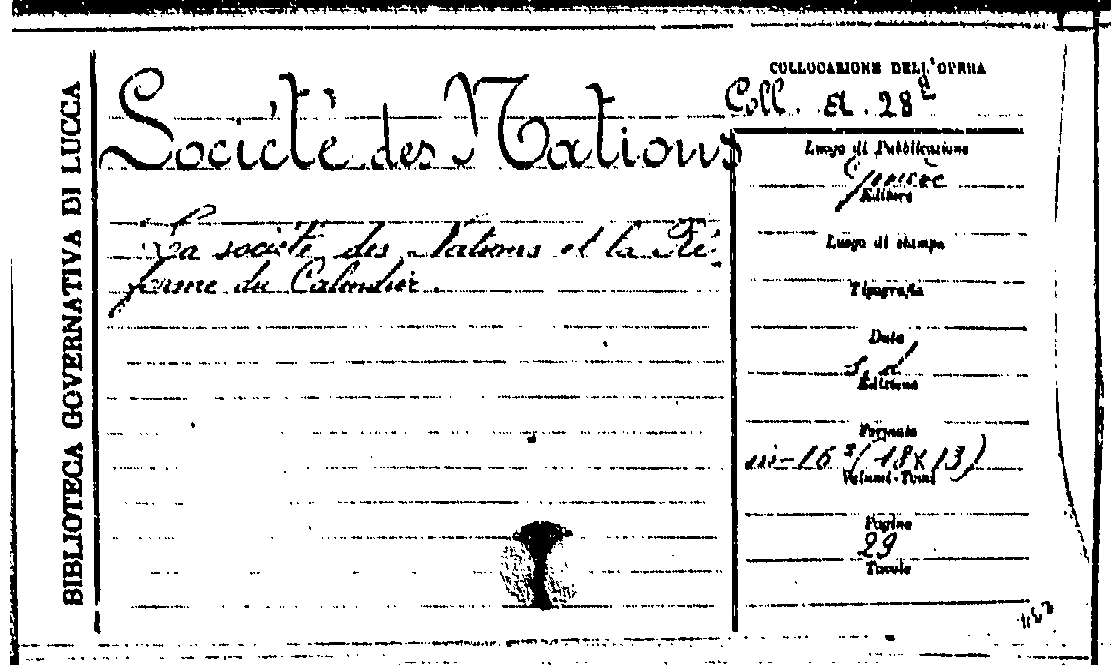 BIBLIOTECA GOVERNATIVA DI LUCCA
Société des Nations
La société des Nations et la Ré-
forme du Calendrier.
COLLOCAZIONE DELL'OPERA
Coll. A. 28
Luogo di Pubblicazione
Genève
Editore
Luogo di stampa
Tipografia
Data
s. d.
Edizione
Formato
in-16° (18x13)
Volumi-Tomi
Pagine
29
Tavole